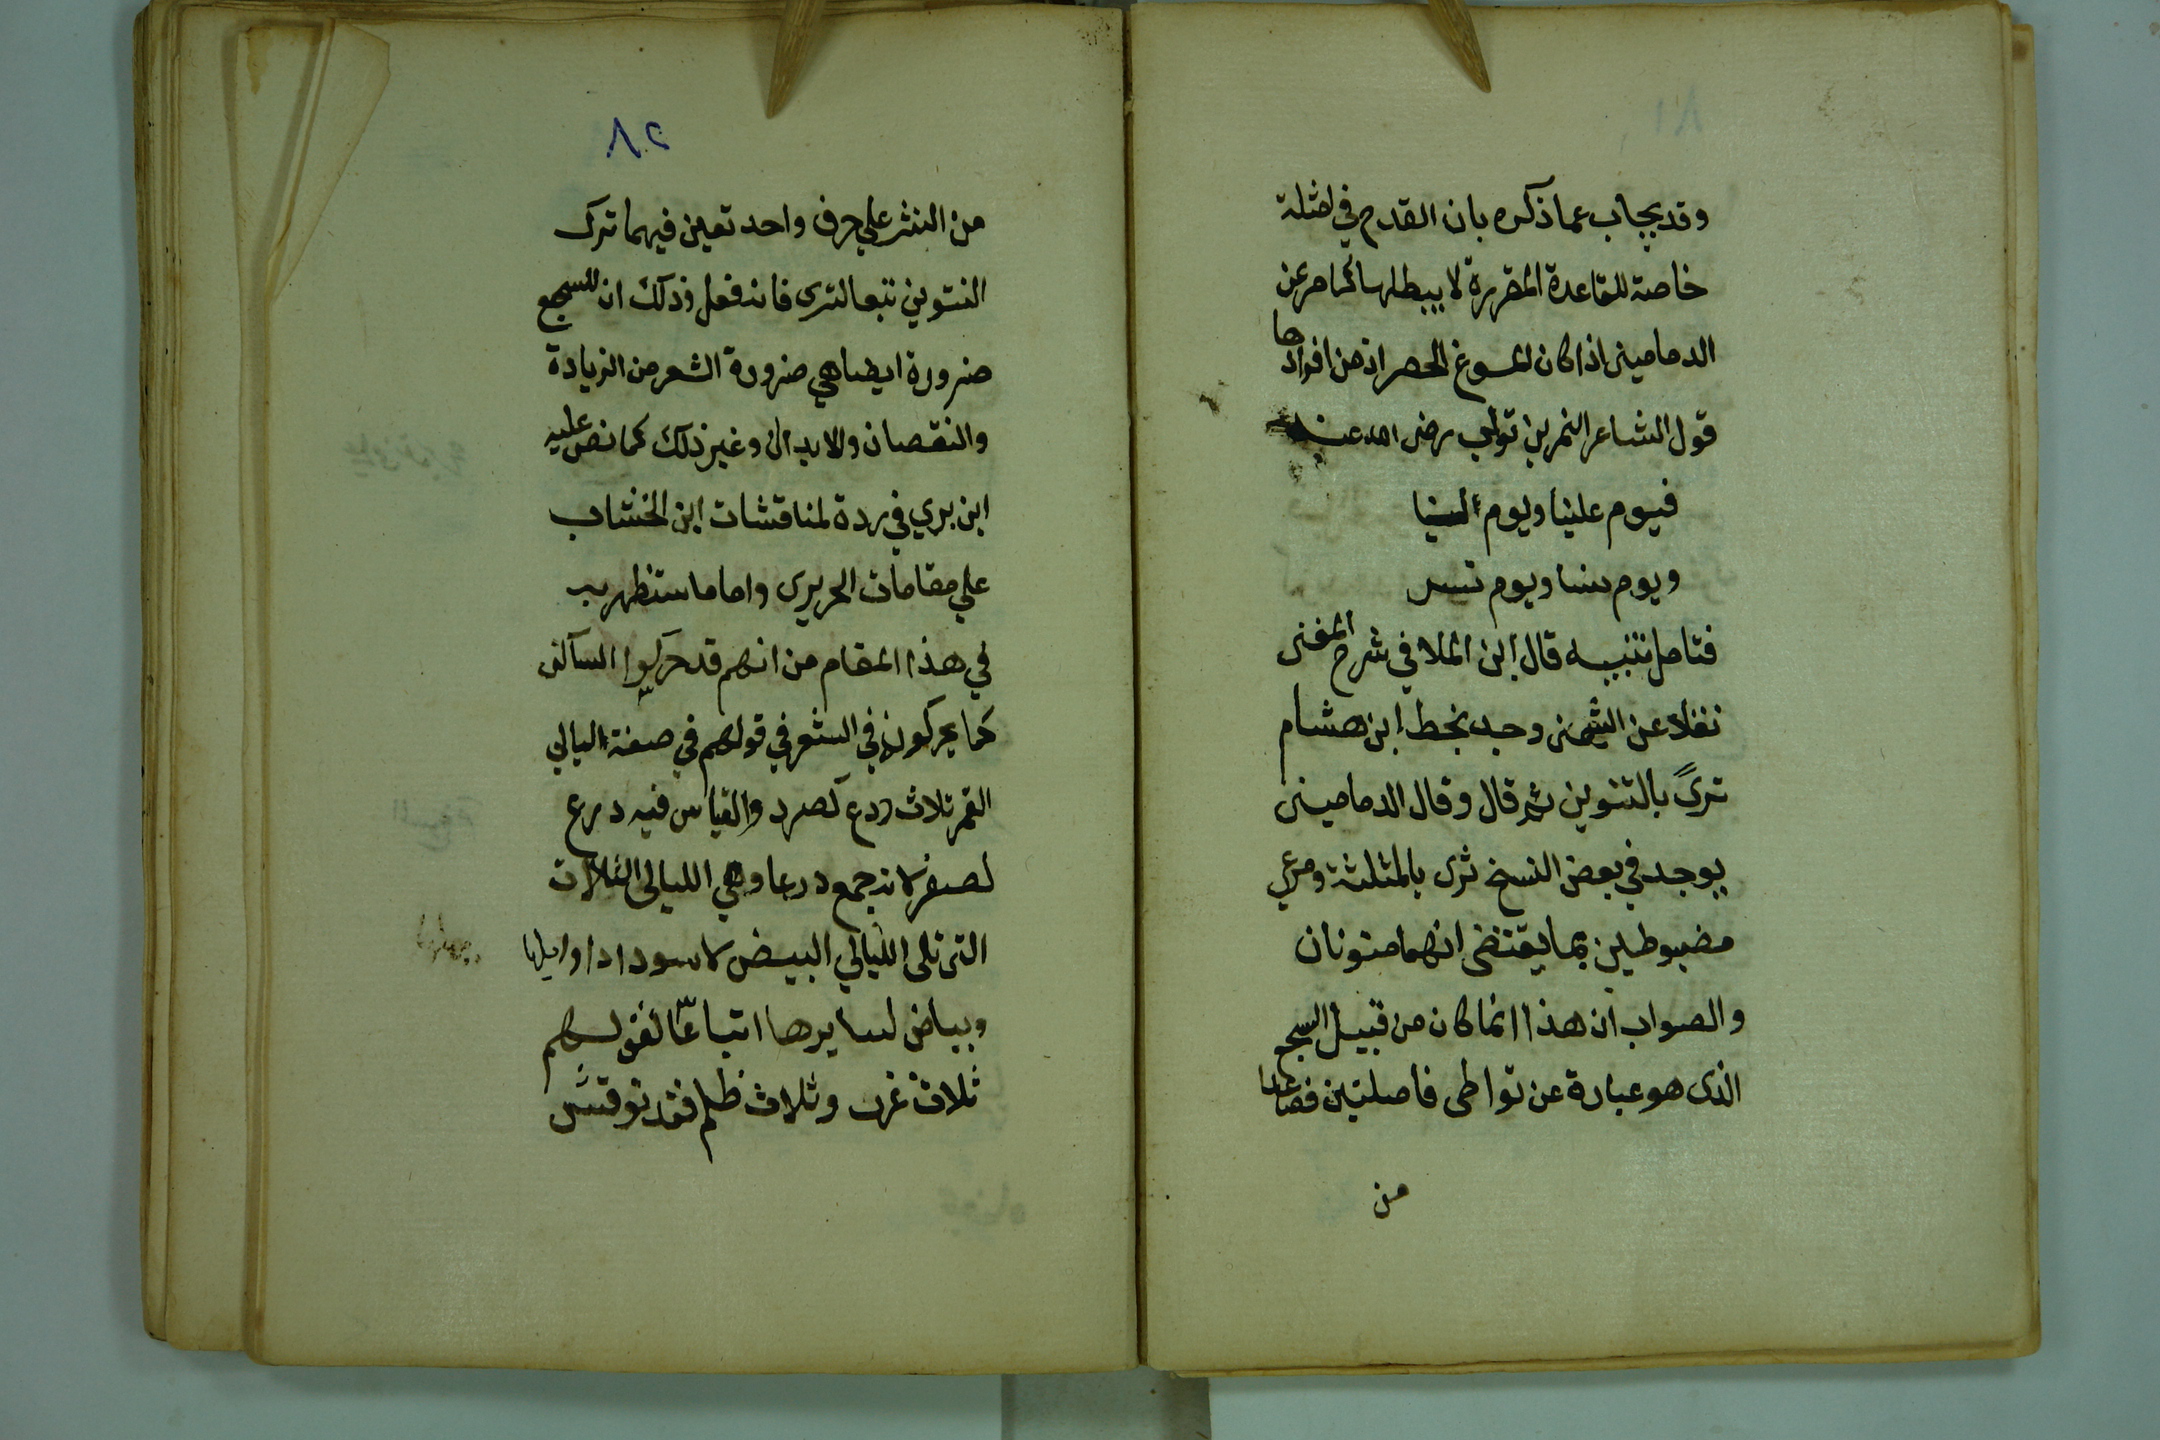 وقد يجاب عما ذكره بان القدم في امثلة
خاصة للقاعدة المقررة لا يبطلها كما مر عن
الدماميني اذا كان المسوغ الحصر اذ من افرادها
قول الشاعر النمر بن تولب رضى الله عنه
فيوم علينا ويوم لنا
ويوم نسا ويوم نسر
فتامل تنبيه قال ابن الملا في شرح المغنى
نقلا عن الشمنى وجد بخط ابن هشام
ترىً بالتنوين ثم قال وقال الدمامينى
يوجد في بعض النسخ ثرى بالمثلثة ومرعي
مضبوطين بما يقتضى انهما منونان
والصواب ان هذا انما كان من قبيل السجع
الذى هو عبارة عن تواطى فاصلتين فصاعدا
من
٨٢
من النثر علي حرف واحد تعين فيهما ترك
التنوين تبعا لترى فانه فعل وذلك ان للسجع
ضرورة ايضا هي ضرورة الشعر من الزيادة
والنقصان والابدال وغير ذلك كما نص عليه
ابن بري في رده لمناقشات ابن الخشاب
علي مقامات الحريرى واما ما ستظهر به
في هذا المقام من انهم قد حركوا الساكن
كما يحركونه في الشعر في قولهم في صفة اليالي
القمر ثلاث درع كصرد والقياس فيه درع
لصفر لانه جمع درعا وهي الليالى الثلاث
التى تلى الليالي البيض لاسوداد اوايلها
وبياض لسايرها اتباعا لقولهم
ثلاث غرر وثلاث ظلم فقد نوقش